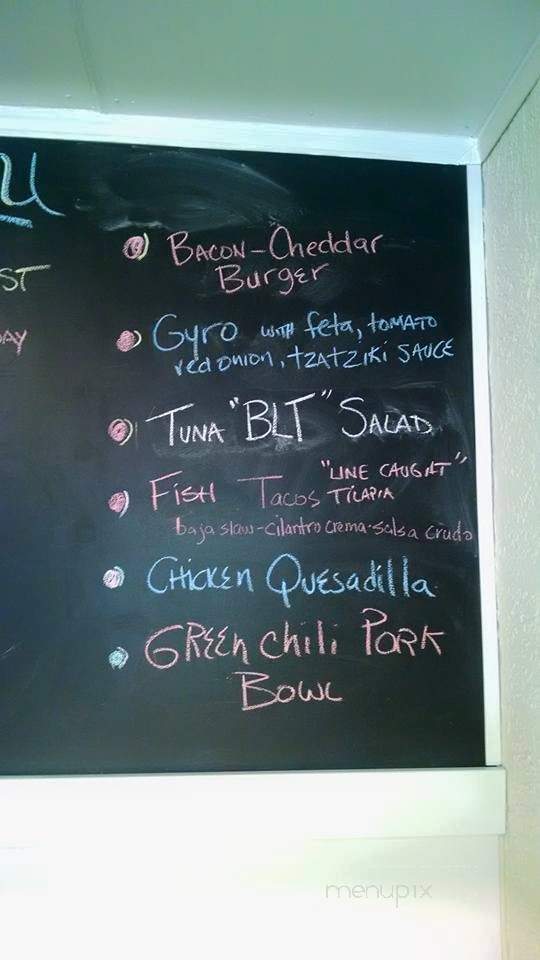 U
ST
AY
Bacon-Cheddar
Burger
Gyro with feta, tomato
red onion, tzatziki sauce
Tuna "BLT" Salad
Fish Tacos "Line Caught"
Tilapia
baja slaw-cilantro crema-salsa crudo
Chicken Quesadilla
Green Chili Pork
Bowl
menupix